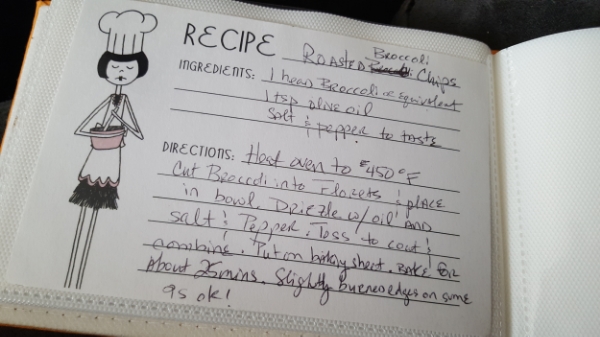 RECIPE Roasted Broccoli Chips
INGREDIENTS: 1 head Broccoli or equivalent
1 tsp olive oil
Salt & pepper to taste
DIRECTIONS: Heat oven to 450°F
Cut Broccoli into Florets & place
in bowl Drizzle w/ oil AND
salt & Pepper. Toss to coat &
combine. Put on baking sheet. BAKE for
About 25 mins. Slightly burned edges on some
is ok!